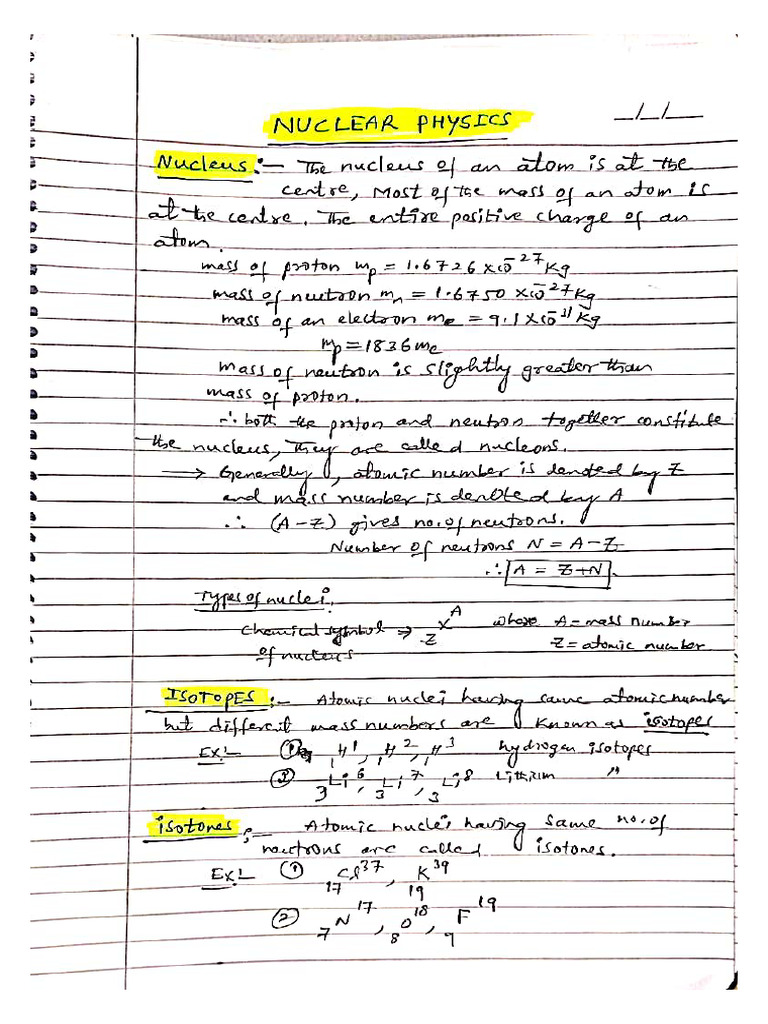 _/_/__
NUCLEAR PHYSICS
Nucleus:- The nucleus of an atom is at the
centre, Most of the mass of an atom is
at the centre. The entire positive charge of an
atom.
mass of proton mp = 1.6726 × 10⁻²⁷ Kg
mass of neutron mn = 1.6750 × 10⁻²⁷ Kg
mass of an electron me = 9.1 × 10⁻³¹ Kg
mp = 1836 me
mass of neutron is slightly greater than
mass of proton.
∴ both the proton and neutron together constitute
the nucleus, They are called nucleons.
→ Generally, atomic number is denoted by Z
and mass number is denoted by A
∴ (A-Z) gives no. of neutrons.
Number of neutrons N = A-Z
∴ A = Z+N.
Types of nuclei.
Chemical symbol → zXᴬ where A = mass number
of nucleus Z = atomic number
ISOTOPES:- Atomic nuclei having same atomic number
but different mass numbers are known as isotopes
Ex:- ① ₁H¹, ₁H², ₁H³ hydrogen isotopes
② ₃Li⁶, ₃Li⁷, ₃Li⁸ Lithium "
isotones:- Atomic nuclei having same no. of
neutrons are called isotones.
Ex:- ① ₁₇Cl³⁷, ₁₉K³⁹
② ₇N¹⁷, ₈O¹⁸, ₉F¹⁹